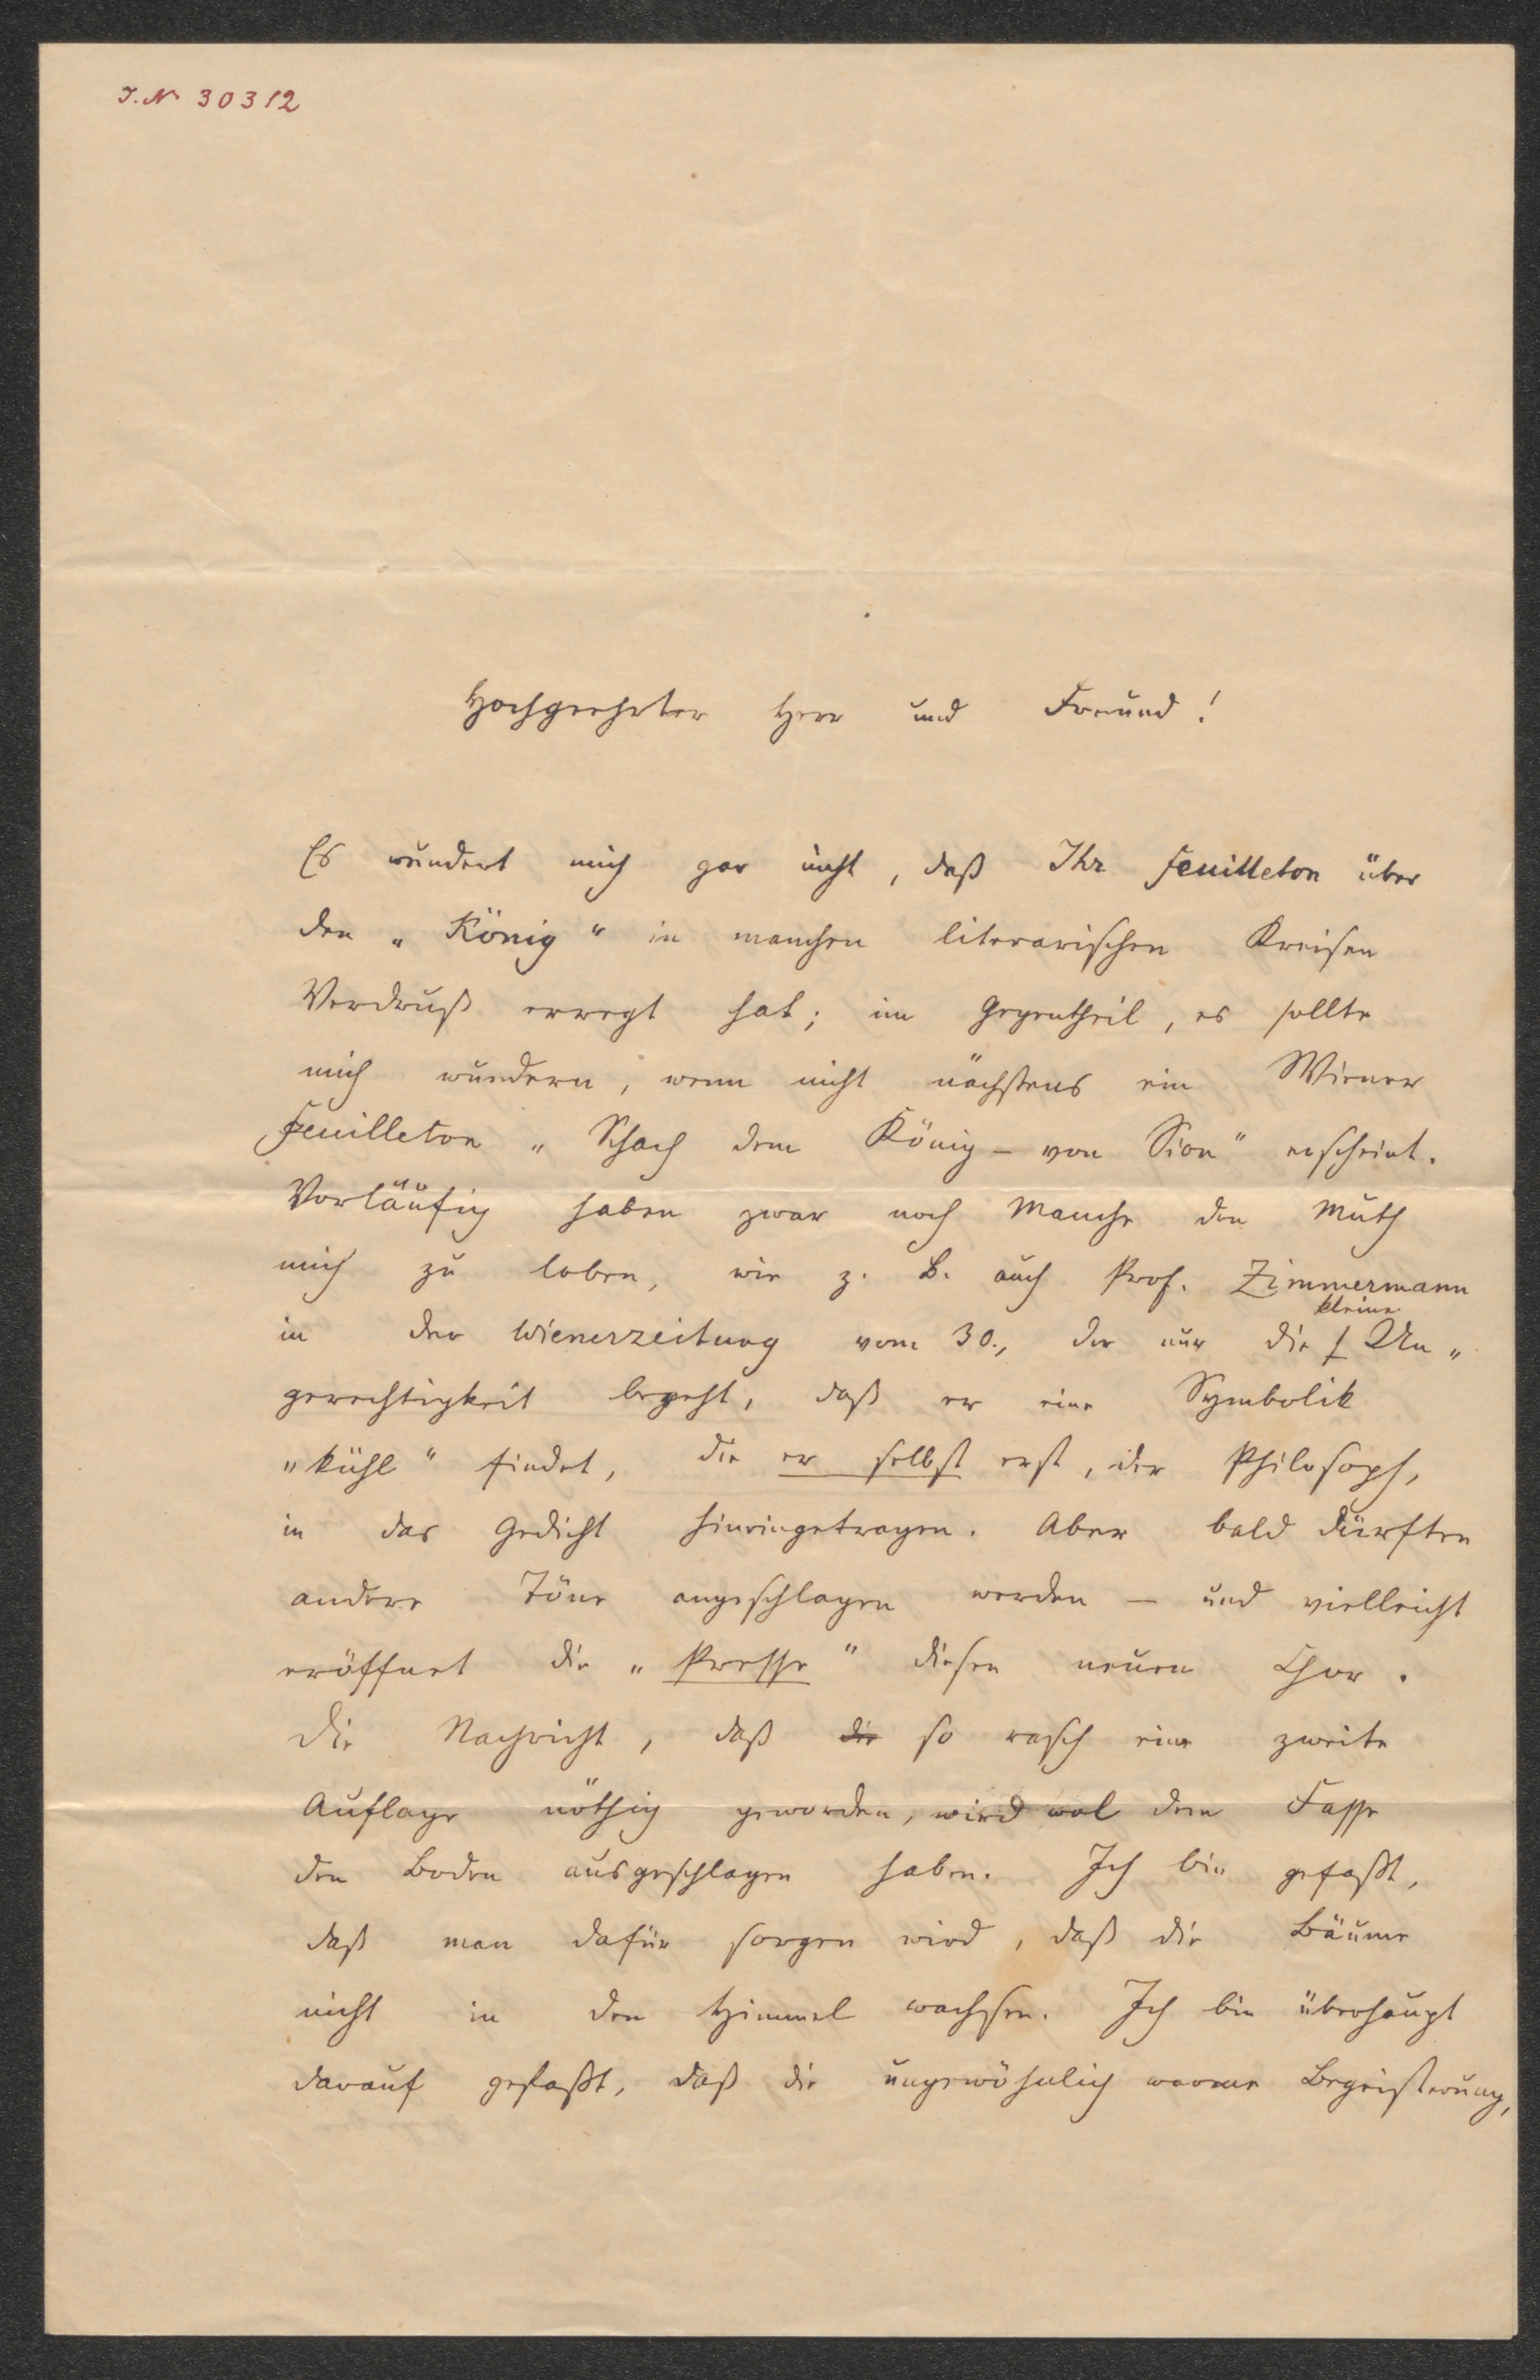 I. N 30312
Hochgeehrter Herr und Freund!
Es wundert mich gar nicht, daß Ihr Feuilleton über
den „König“ in manchen literarischen Kreisen
Verdruß erregt hat; im Gegentheil, es sollte
mich wundern, wenn nicht nächstens ein Wiener
Feuilleton „Schach dem König – von Sion“ erscheint.
Vorläufig haben zwar noch Manche den Muth
mich zu loben, wie z. B. auch Prof. Zimmermann
in der Wienerzeitung vom 30., der nur die kleine Un„
gerechtigkeit begeht, daß er eine Symbolik
„kühl“ findet, die er selbst erst, der Philosoph,
in das Gedicht hineingetragen. Aber bald dürften
andere Töne angeschlagen werden – und vielleicht
eröffnet die „Presse“ diesen neuen Chor.
Die Nachricht, daß die so rasch eine zweite
Auflage nöthig geworden, wird wol dem Fasse
den Boden ausgeschlagen haben. Ich bin gefaßt,
daß man dafür sorgen wird, daß die Bäume
nicht in den Himmel wachsen. Ich bin überhaupt
darauf gefaßt, daß die ungewöhnlich warme Begeisterung,